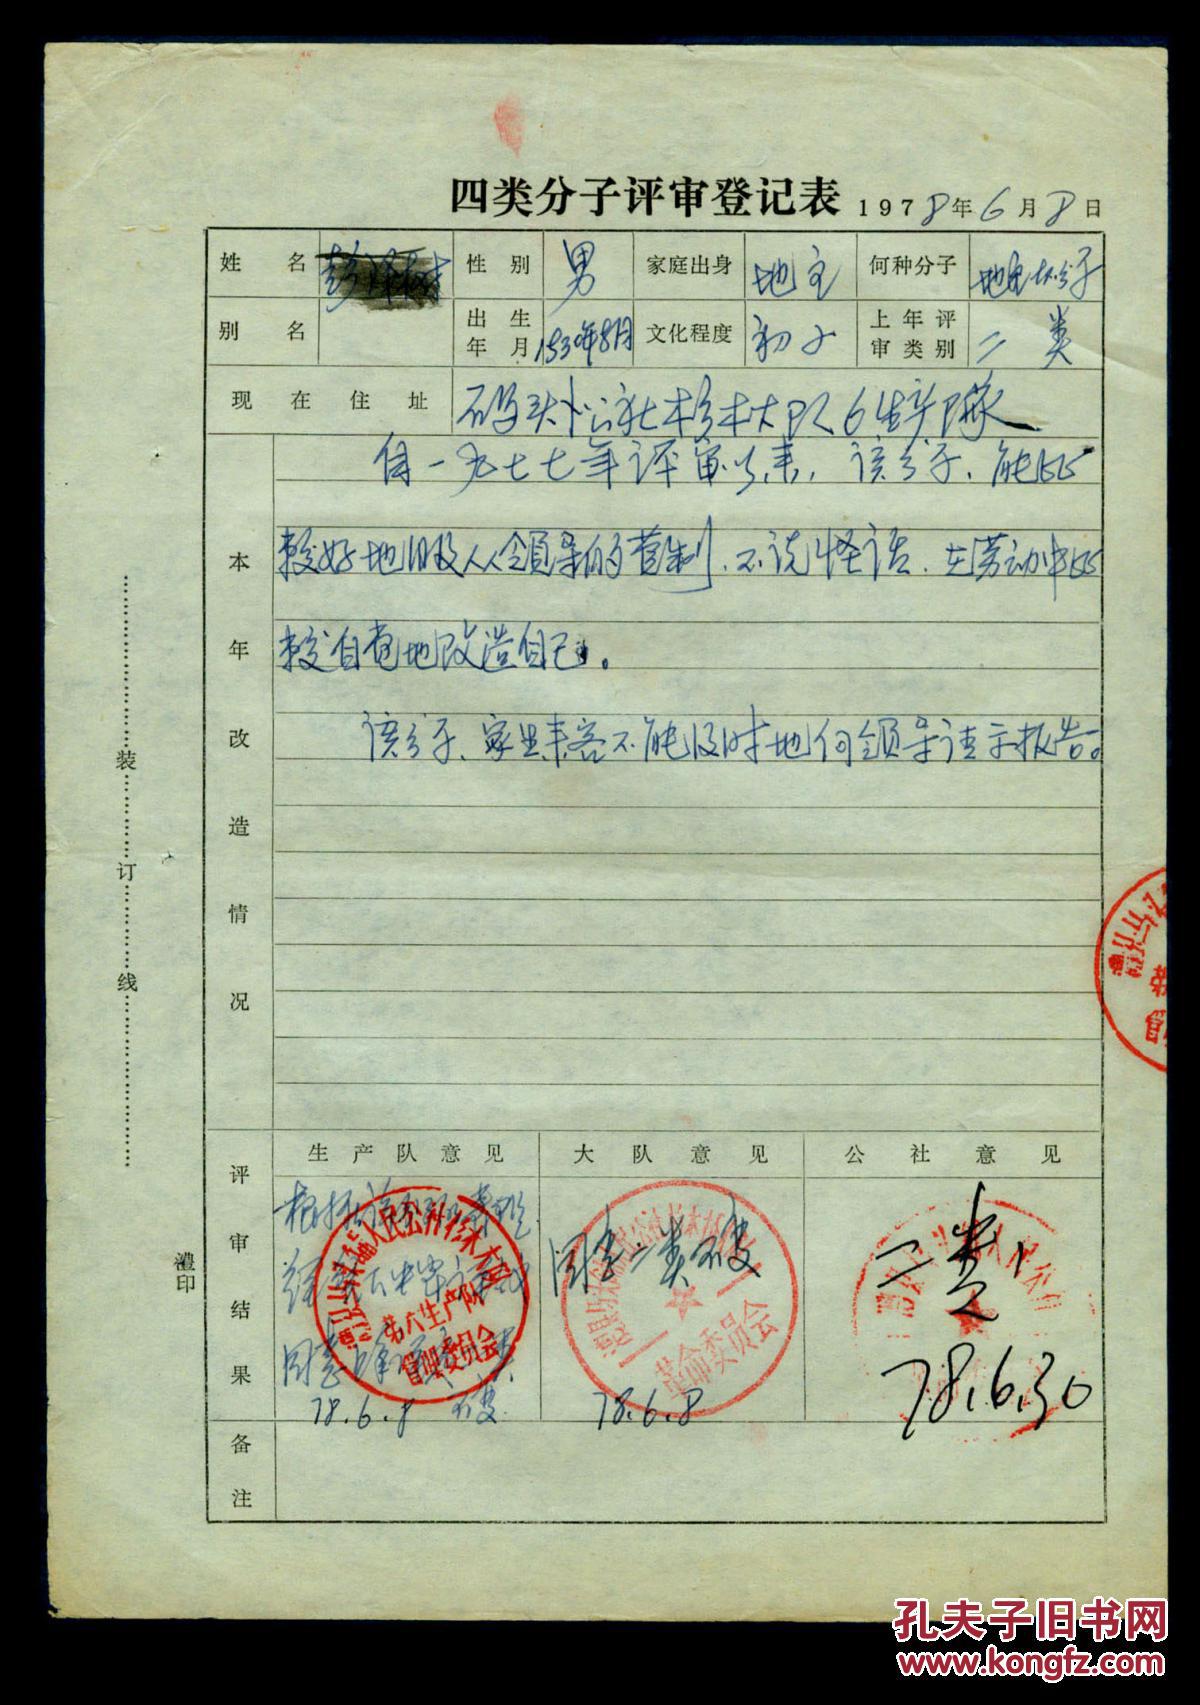 四类分子评审登记表 1978年6月8日
姓名 性别 男 家庭出身 地主 何种分子 地主坏分子
别名 出生年月 1930年8月 文化程度 初小 上年评审类别 二类
现在住址 码头公社杉木大队6生产队
本年改造情况
自一九七七年评审以来,该分子,能比
较好地服从领导的管制,不说怪话,在劳动中比
较自觉地改造自己。
该分子、家里来客不能及时地向领导请示报告。
装订线
评审结果
生产队意见 大队意见 公社意见
同意二类不变
二类
78.6.8 不变
78.6.8
78.6.30
第六生产队
管理委员会
革命委员会
备注
澧印
孔夫子旧书网
www.kongfz.com